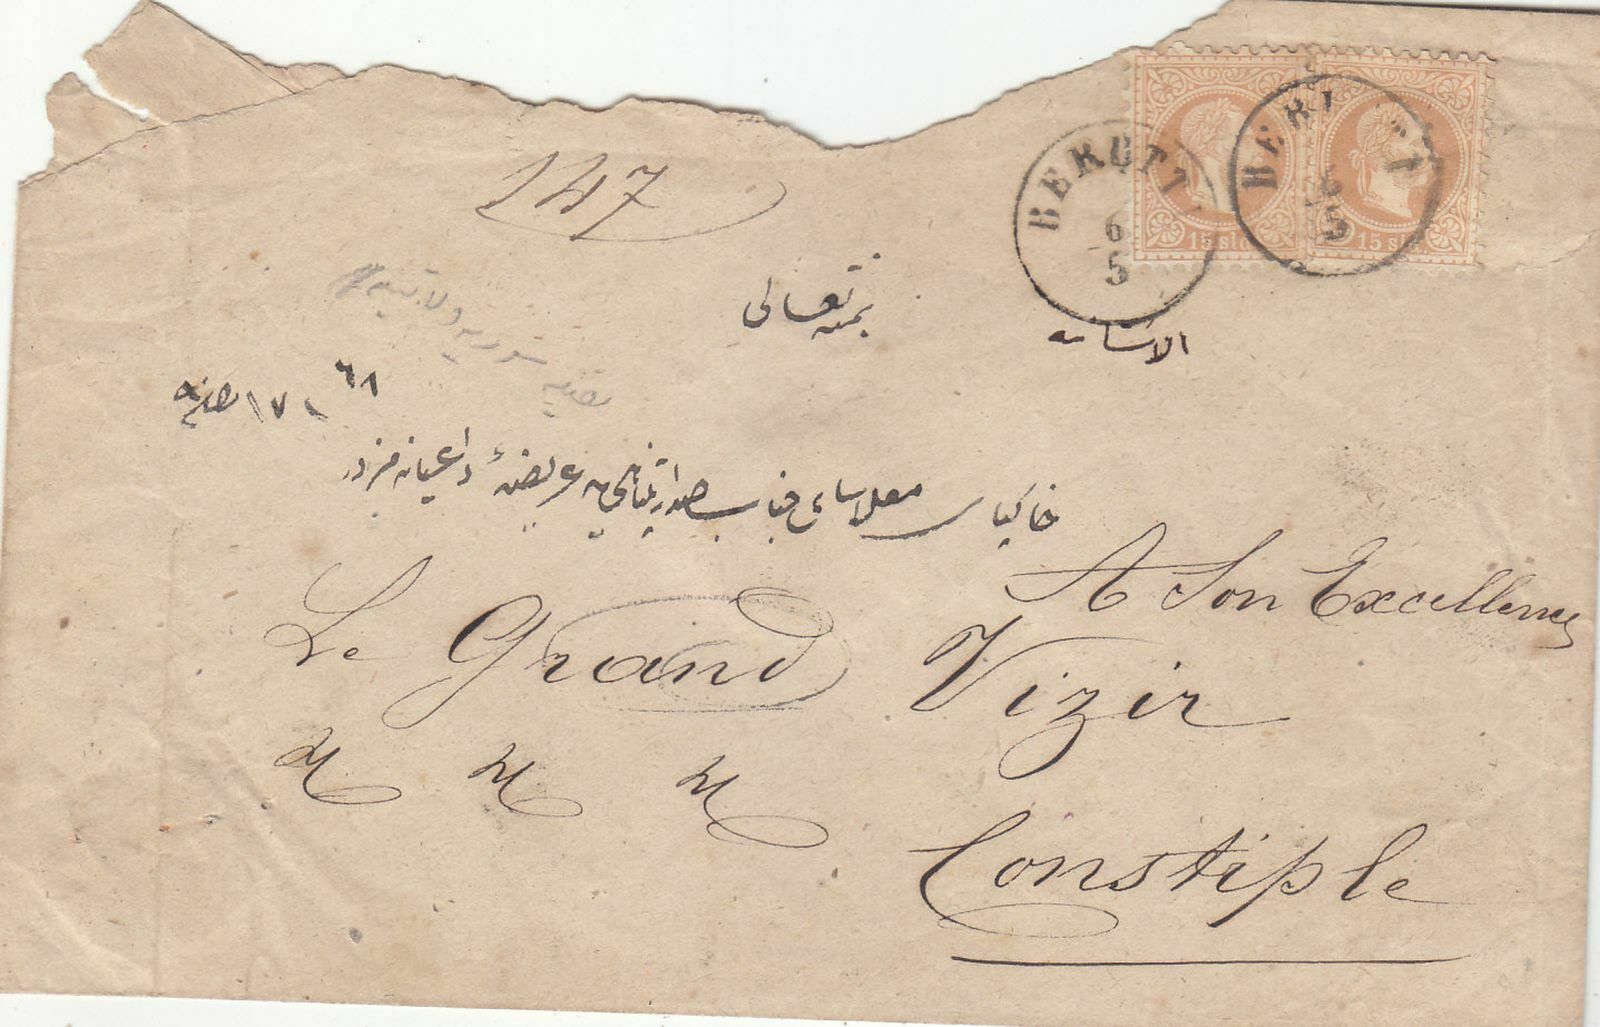 147
BERUTT
6
5
BER
6
5
15 sld
15 sld
بمنه تعالى
الاستانه
٦٨
١٧١
خاكپاى معلاساى جناب صدارتپناهى يه عريضهٔ داعيانه مزدر
A Son Excellence
Le Grand Vizir
Constiple